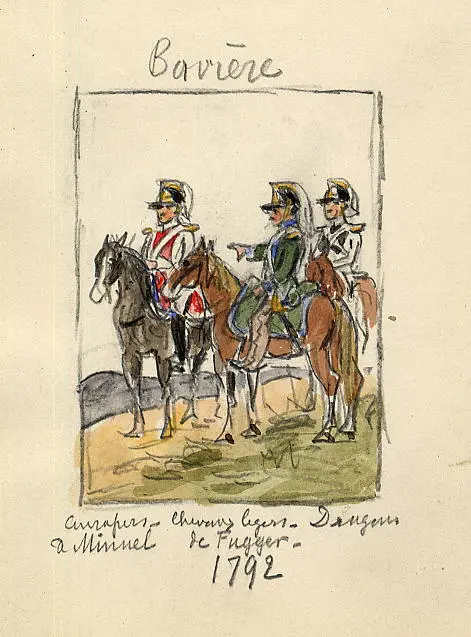 Bavière
Cuirassiers - Chevaux legers - Dragons
a Minuel de Fugger -
1792